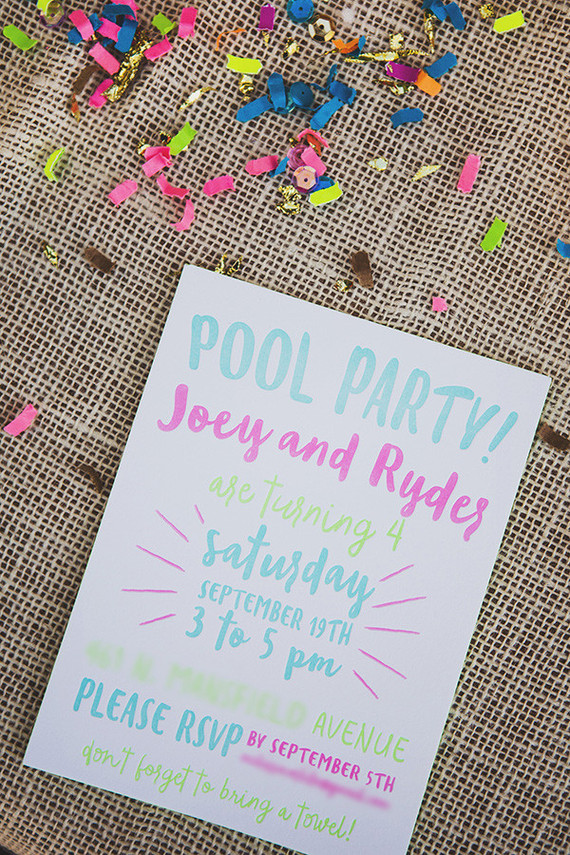 POOL PARTY!
Joey and Ryder
are turning 4
saturday
SEPTEMBER 19TH
3 to 5 pm
AVENUE
PLEASE RSVP BY SEPTEMBER 5TH
don't forget to bring a towel!